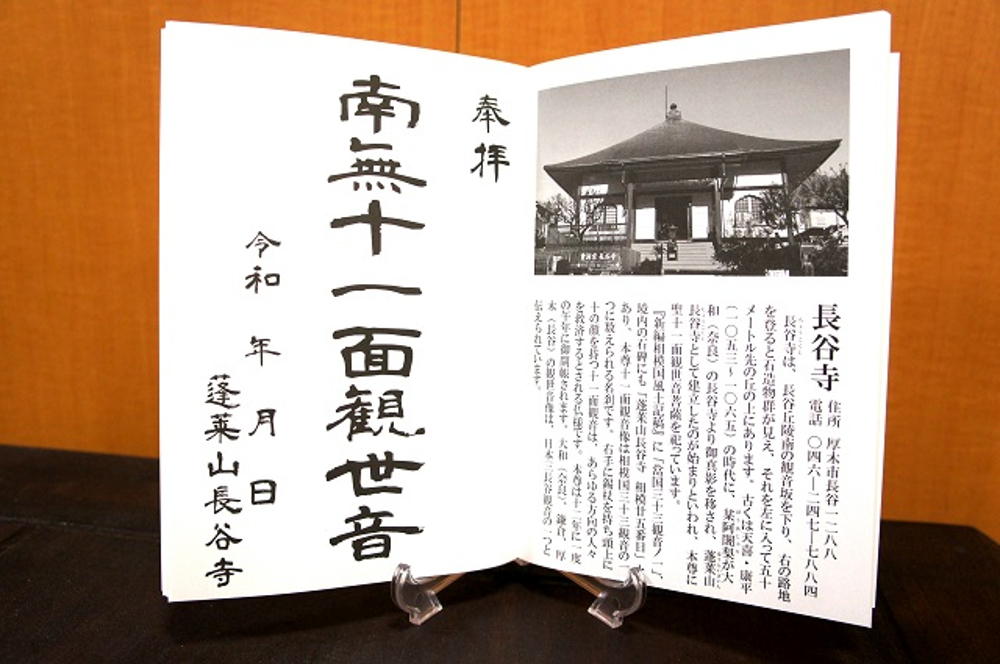 長谷寺
住所 厚木市長谷一二八八
電話 〇四六―二四七―七八八四
長谷寺は、長谷丘陵南の観音坂を下り、右の路地
を登ると石造物群が見え、それを左に入って五十
メートル先の丘の上にあります。古くは天喜・康平
(一〇五三〜一〇六五)の時代に、某阿闍梨が大
和(奈良)の長谷寺より御真影を移され、蓬莱山
長谷寺として建立したのが始まりといわれ、本尊に
聖十一面観世音菩薩を祀っています。
『新編相模国風土記稿』に「当国三十三観音ノ一」、
境内の石碑にも「蓬莱山長谷寺 相模廿五番目」と
あり、本尊十一面観音像は相模国三十三観音の一
つに数えられる名刹です。右手に錫杖を持ち頭上に
十の顔を持つ十一面観音は、あらゆる方向の人々
を救済するとされる仏様です。本尊は十二年に一度
の午年に御開帳されます。大和(奈良)、鎌倉、厚
木(長谷)の観世音像は、日本三長谷観音の一つと
伝えられています。
奉拝
南無十一面観世音
令和 年 月 日
蓬莱山長谷寺